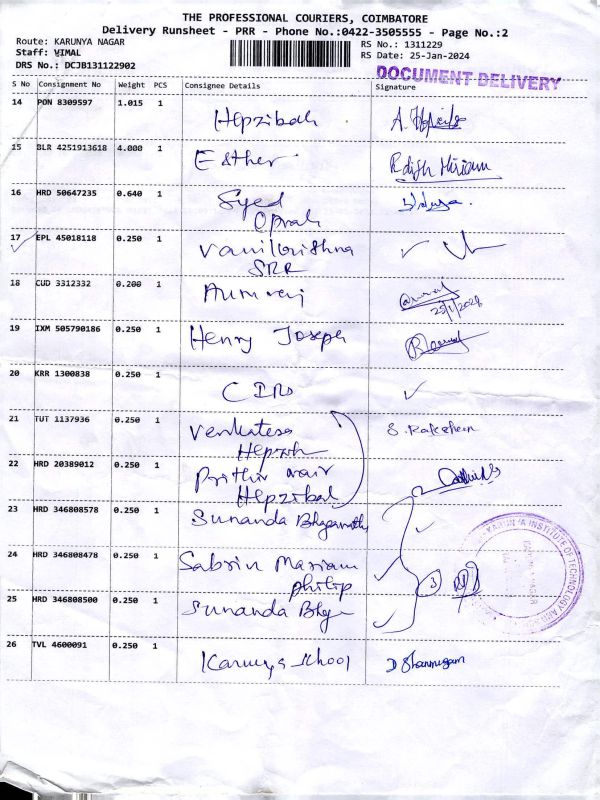 THE PROFESSIONAL COURIERS, COIMBATORE
Delivery Runsheet - PRR - Phone No.:0422-3505555 - Page No.:2
Route: KARUNYA NAGAR
Staff: VIMAL
DRS No.: DCJB131122902
RS No.: 1311229
RS Date: 25-Jan-2024
DOCUMENT DELIVERY
S No Consignment No Weight PCS Consignee Details Signature
14 PON 8309597 1.015 1 Hepzibah
15 BLR 4251913618 4.000 1 Esther
16 HRD 50647235 0.640 1 Syed
Oprah
17 EPL 45018118 0.250 1 Vanikrishna
SRR
18 CUD 3312332 0.200 1
25/1/2024
19 IXM 505790186 0.250 1 Henry Joseph
20 KRR 1300838 0.250 1
21 TUT 1137936 0.250 1 Venkatesa
22 HRD 20389012 0.250 1 Prithir nair
Hepzibah
23 HRD 346808578 0.250 1 Sunanda
24 HRD 346808478 0.250 1 Sabrin Mariam
Philip
25 HRD 346808500 0.250 1 Sunanda
3
26 TVL 4600091 0.250 1 Karunya School D Shanmugam
KARUNYA INSTITUTE OF TECHNOLOGY AND